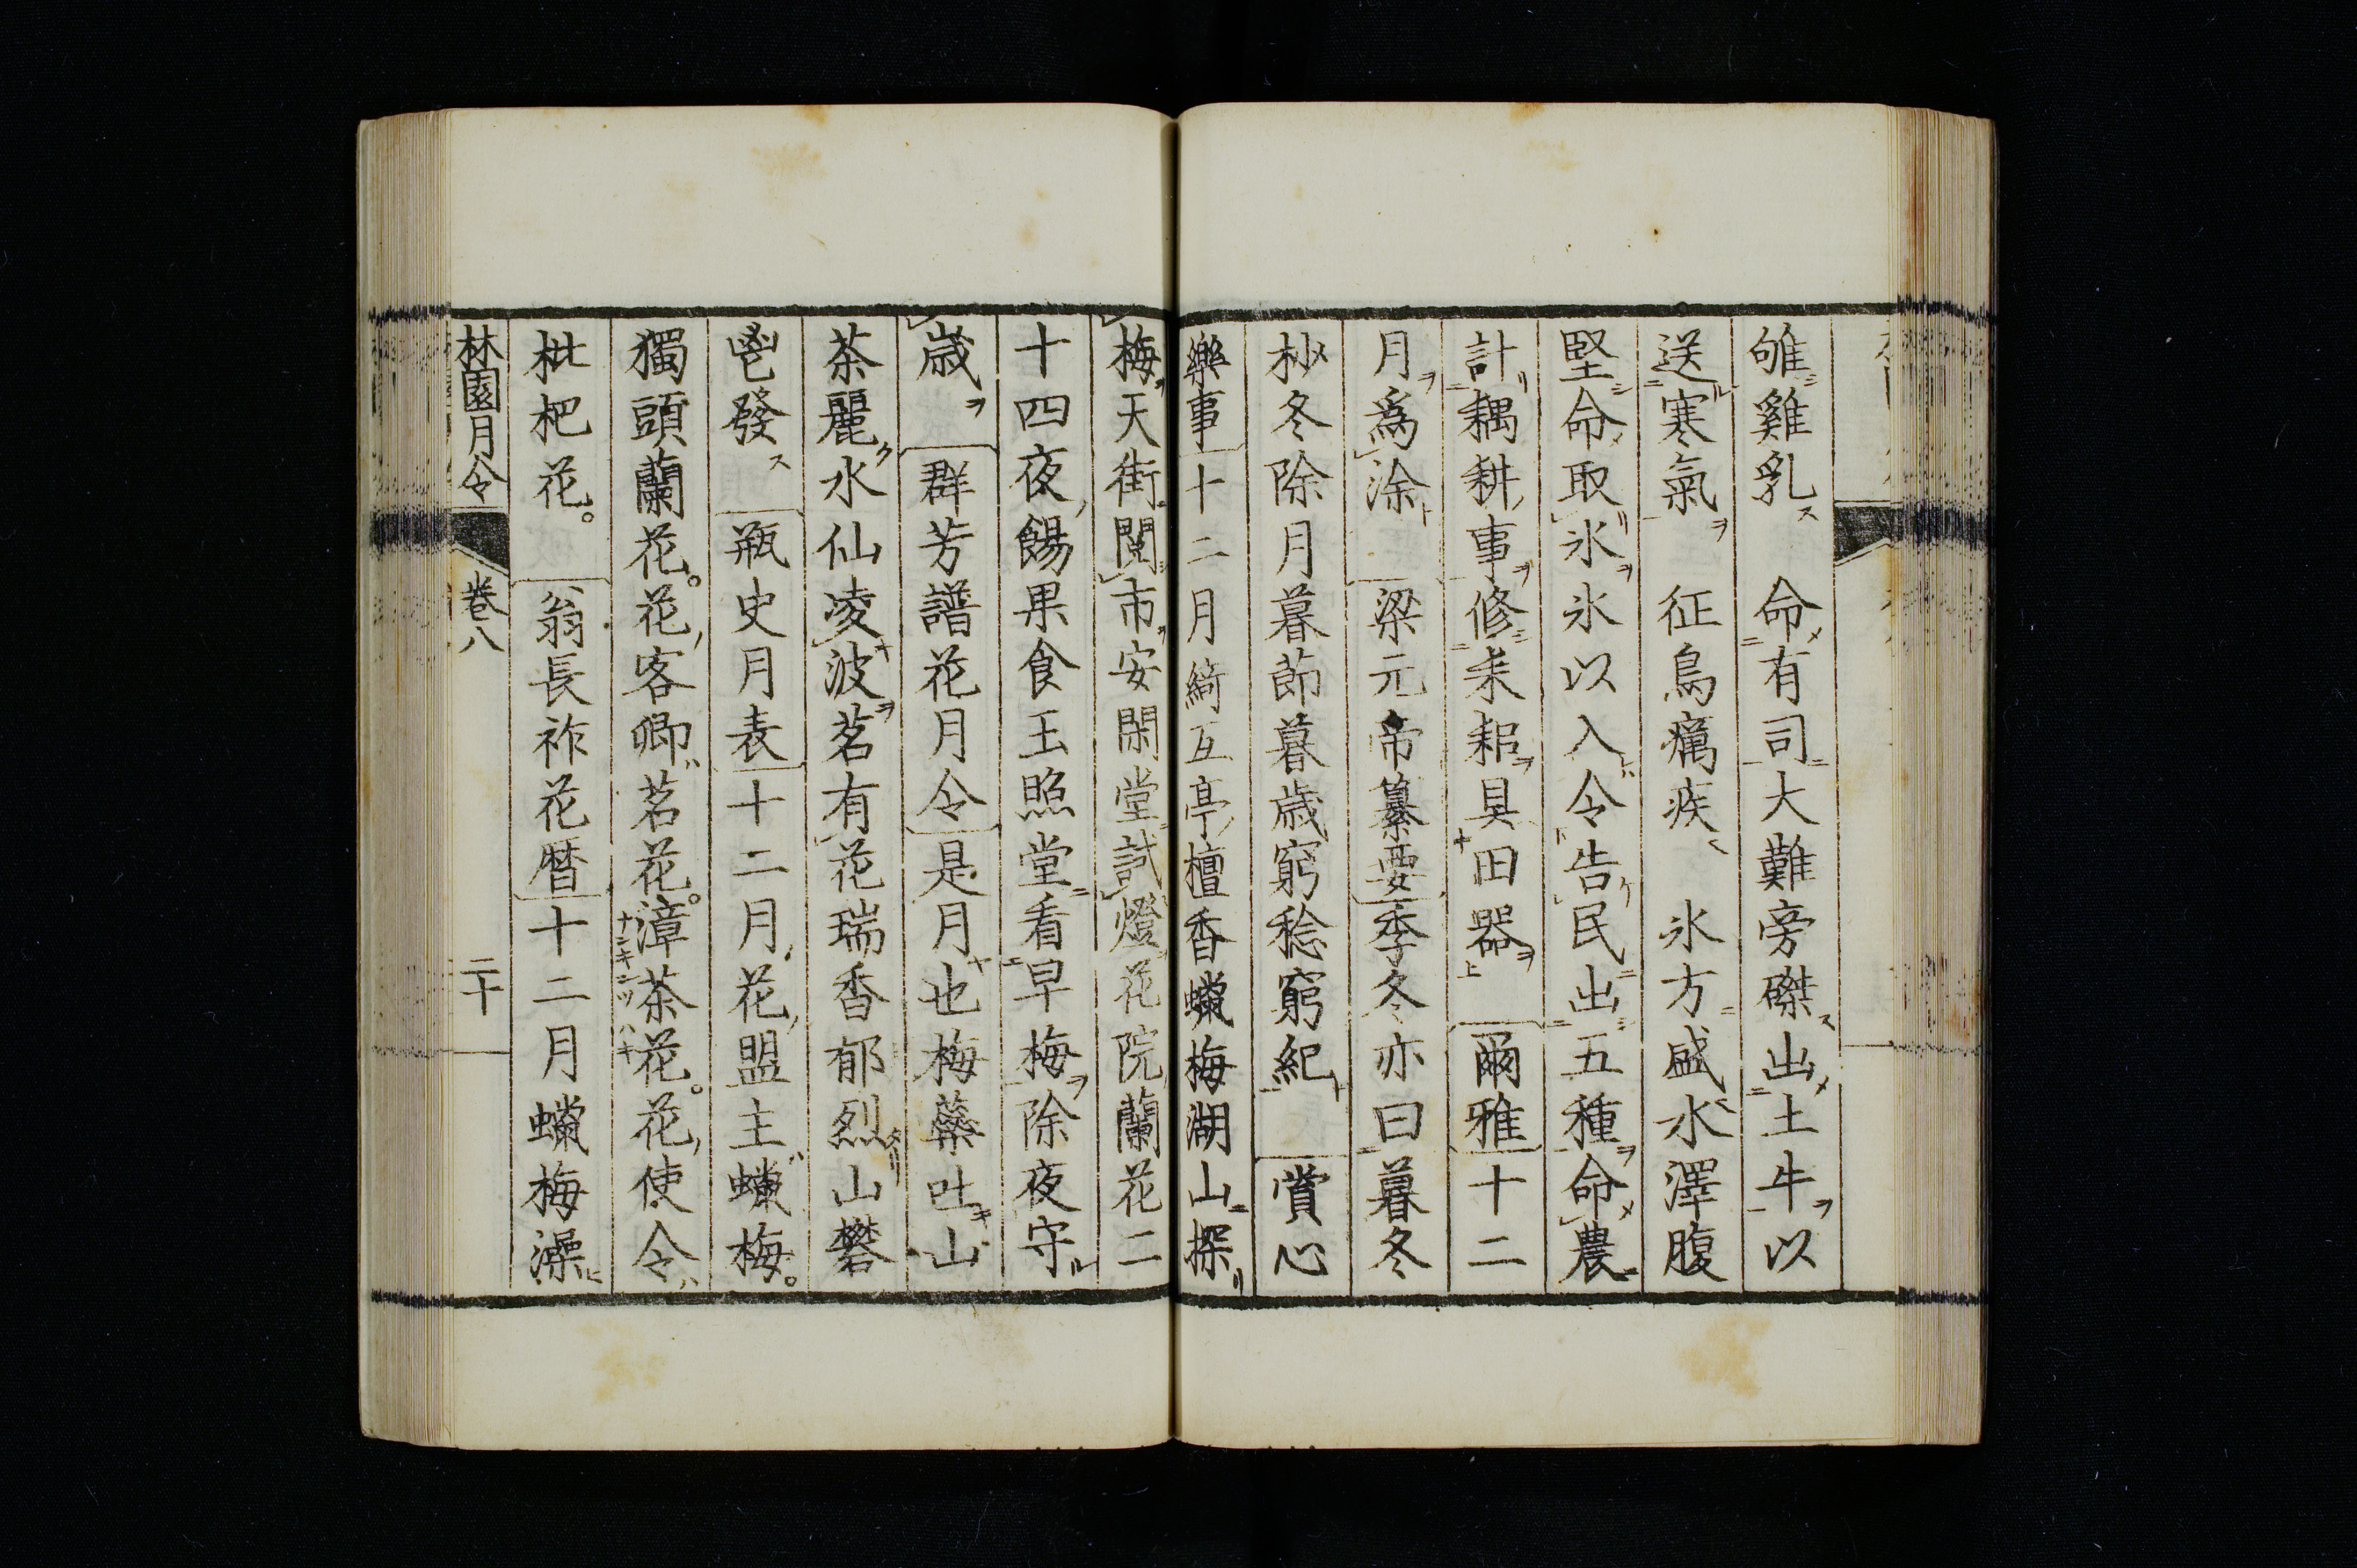 雊雞乳ス 命メ有司大難旁磔ス出メ土牛ヲ以
送寒氣ヲ 征鳥癘疾 氷方盛水澤腹
堅命メ取氷ヲ氷以入令告民出五種ヲ命メ農
計耦耕事ヲ修耒耜ヲ具田器ヲ 爾雅十二
月ヲ爲涂ト 梁元帝纂要季冬亦曰暮冬
杪冬除月暮節暮歳窮稔窮紀 賞心
樂事十二月綺互亭檀香蠟梅湖山探
梅ヲ天街閲市ヲ安閑堂試燈花院蘭花二
十四夜餳果食玉照堂看早梅ヲ除夜守
歳ヲ 群芳譜花月令是月也梅蘂吐山
茶麗ク水仙凌波ヲ茗有花瑞香郁烈山礬
鬯發ス 瓶史月表十二月花盟主蠟梅。
獨頭蘭花。花客卿茗花。漳茶花。花使令
枇杷花。 翁長祚花暦十二月蠟梅澡
林園月令 卷八 二十